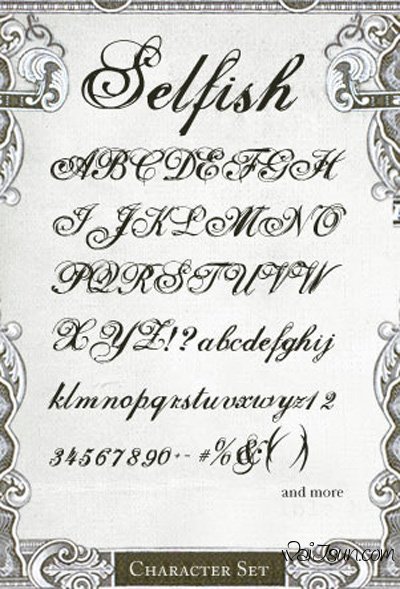 Selfish
ABCDEFGH
IJKLMNO
PQRSTUVW
XYZ!?abcdefghij
klmnopqrstuvxwyz12
34567890+-#%&()
and more
Character Set